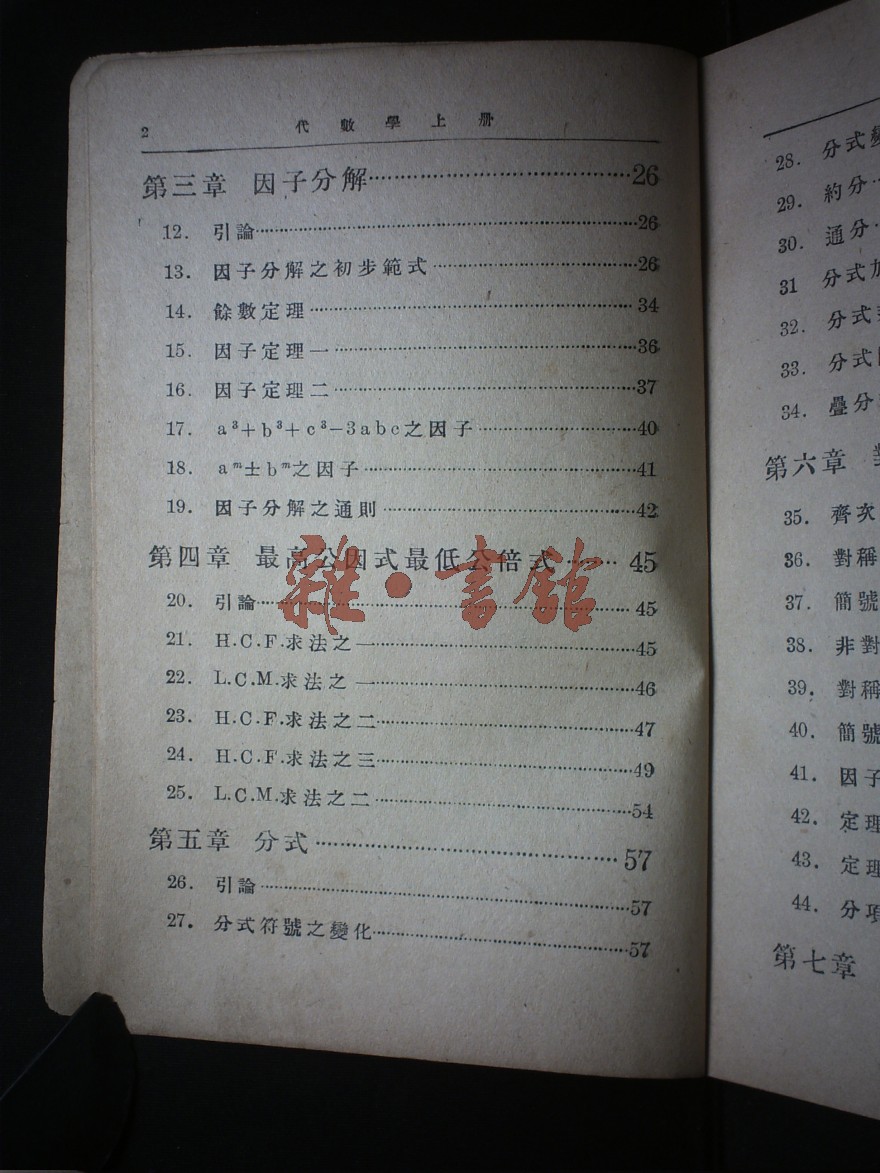 2 代數學上册
第三章 因子分解……26
12. 引論……26
13. 因子分解之初步範式……26
14. 餘數定理……34
15. 因子定理一……36
16. 因子定理二……37
17. a³+b³+c³−3abc之因子……40
18. aᵐ±bᵐ之因子……41
19. 因子分解之通則……42
第四章 最高公因式最低公倍式……45
雜·書館
20. 引論……45
21. H.C.F.求法之一……45
22. L.C.M.求法之一……46
23. H.C.F.求法之二……47
24. H.C.F.求法之三……49
25. L.C.M.求法之二……54
第五章 分式……57
26. 引論……57
27. 分式符號之變化……57
28. 分式變
29. 約分
30. 通分
31 分式加
32. 分式
33. 分式
34. 疊分
第六章
35. 齊次
36. 對稱
37. 簡號
38. 非對
39. 對稱
40. 簡號
41. 因子
42. 定理
43. 定理
44. 分項
第七章